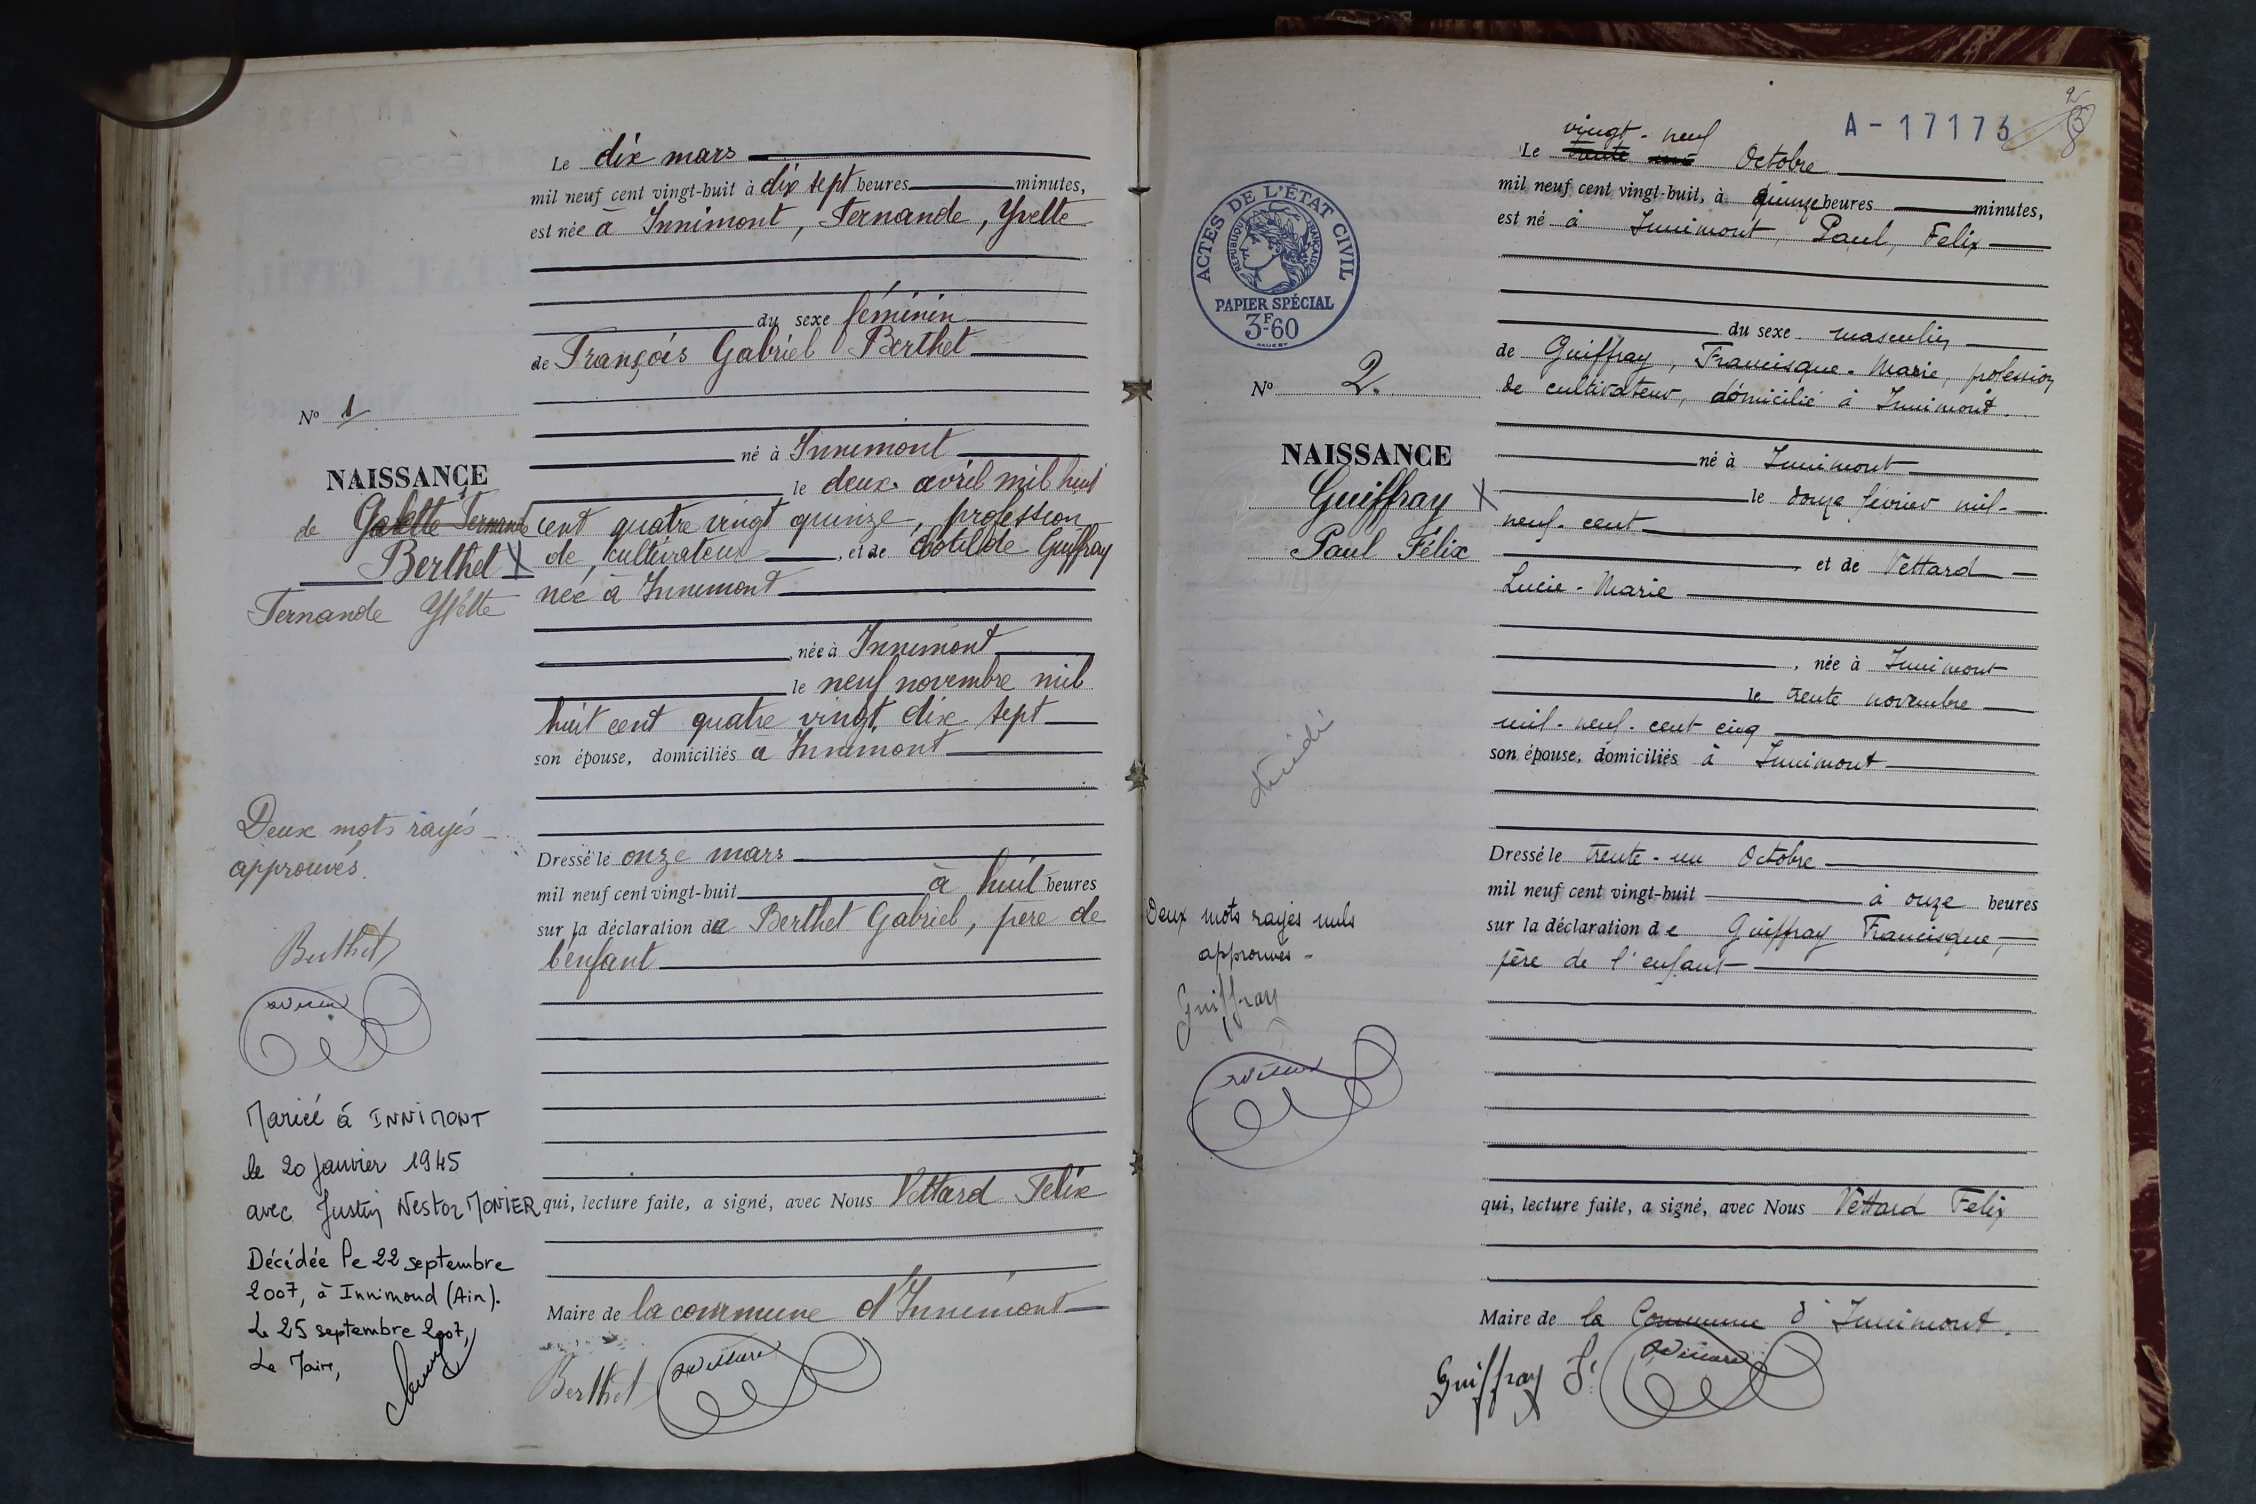 Le dix mars
mil neuf cent vingt-huit à dix sept heures minutes,
est née à Innimont, Fernande, Yvette
du sexe féminin
de François Gabriel Berthet
né à Innimont
le deux avril mil huit
cent quatre vingt quinze, profession
de cultivateur, et de Clotilde Guiffray
née à Innimont
née à Innimont
le neuf novembre mil
huit cent quatre vingt dix sept
son épouse, domiciliés à Innimont
Dressé le onze mars
mil neuf cent vingt-huit à huit heures
sur la déclaration de Berthet Gabriel, père de
l'enfant
qui, lecture faite, a signé, avec Nous Vettard Felix
Maire de la commune d'Innimont
Berthet
No 1
NAISSANCE
de Fernande
Berthet X
Fernande Yvette
Deux mots rayés
approuvés.
Berthet
Mariée à INNIMONT
le 20 Janvier 1945
avec Justin Nestor MONIER
Décédée le 22 septembre
2007, à Innimond (Ain).
Le 25 septembre 2007,
Le Maire,
A-17173
vingt-neuf
Le Octobre
mil neuf cent vingt-huit, à quinze heures minutes,
est né à Innimont, Paul, Felix
du sexe masculin
de Guiffray, Francisque-Marie, profession
de cultivateur, domicilié à Innimont.
né à Innimont
le douze février mil-
neuf-cent
, et de Vettard
Lucie-Marie
, née à Innimont
le trente novembre
mil-neuf-cent cinq
son épouse, domiciliés à Innimont
Dressé le trente-un Octobre
mil neuf cent vingt-huit à onze heures
sur la déclaration de Guiffray Francisque,
père de l'enfant
qui, lecture faite, a signé, avec Nous Vettard Felix
Maire de la Commune d'Innimont.
Guiffray F.
ACTES DE L'ÉTAT CIVIL
RÉPUBLIQUE FRANÇAISE
PAPIER SPÉCIAL
3F-60
No 2.
NAISSANCE
Guiffray X
Paul Félix
Deux mots rayés nuls
approuvés-
Guiffray